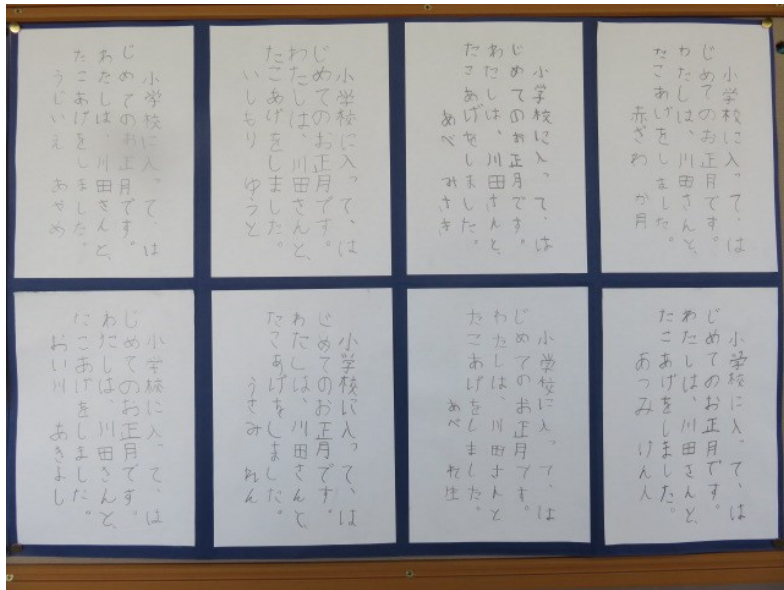 小学校に入って、は
じめてのお正月です。
わたしは、川田さんと、
たこあげをしました。
赤ざわ か月
小学校に入って、は
じめてのお正月です。
わたしは、川田さんと、
たこあげをしました。
あべ みさき
小学校に入って、は
じめてのお正月です。
わたしは、川田さんと、
たこあげをしました。
いしもり ゆうと
小学校に入って、は
じめてのお正月です。
わたしは、川田さんと、
たこあげをしました。
うじいえ あやめ
小学校に入って、は
じめてのお正月です。
わたしは、川田さんと、
たこあげをしました。
あつみ けん人
小学校に入って、は
じめてのお正月です。
わたしは、川田さんと
たこあげをしました。
あべ
小学校に入って、は
じめてのお正月です。
わたしは、川田さんと、
たこあげをしました。
うさみ れん
小学校に入って、は
じめてのお正月です。
わたしは、川田さんと、
たこあげをしました。
おい川 あきよし